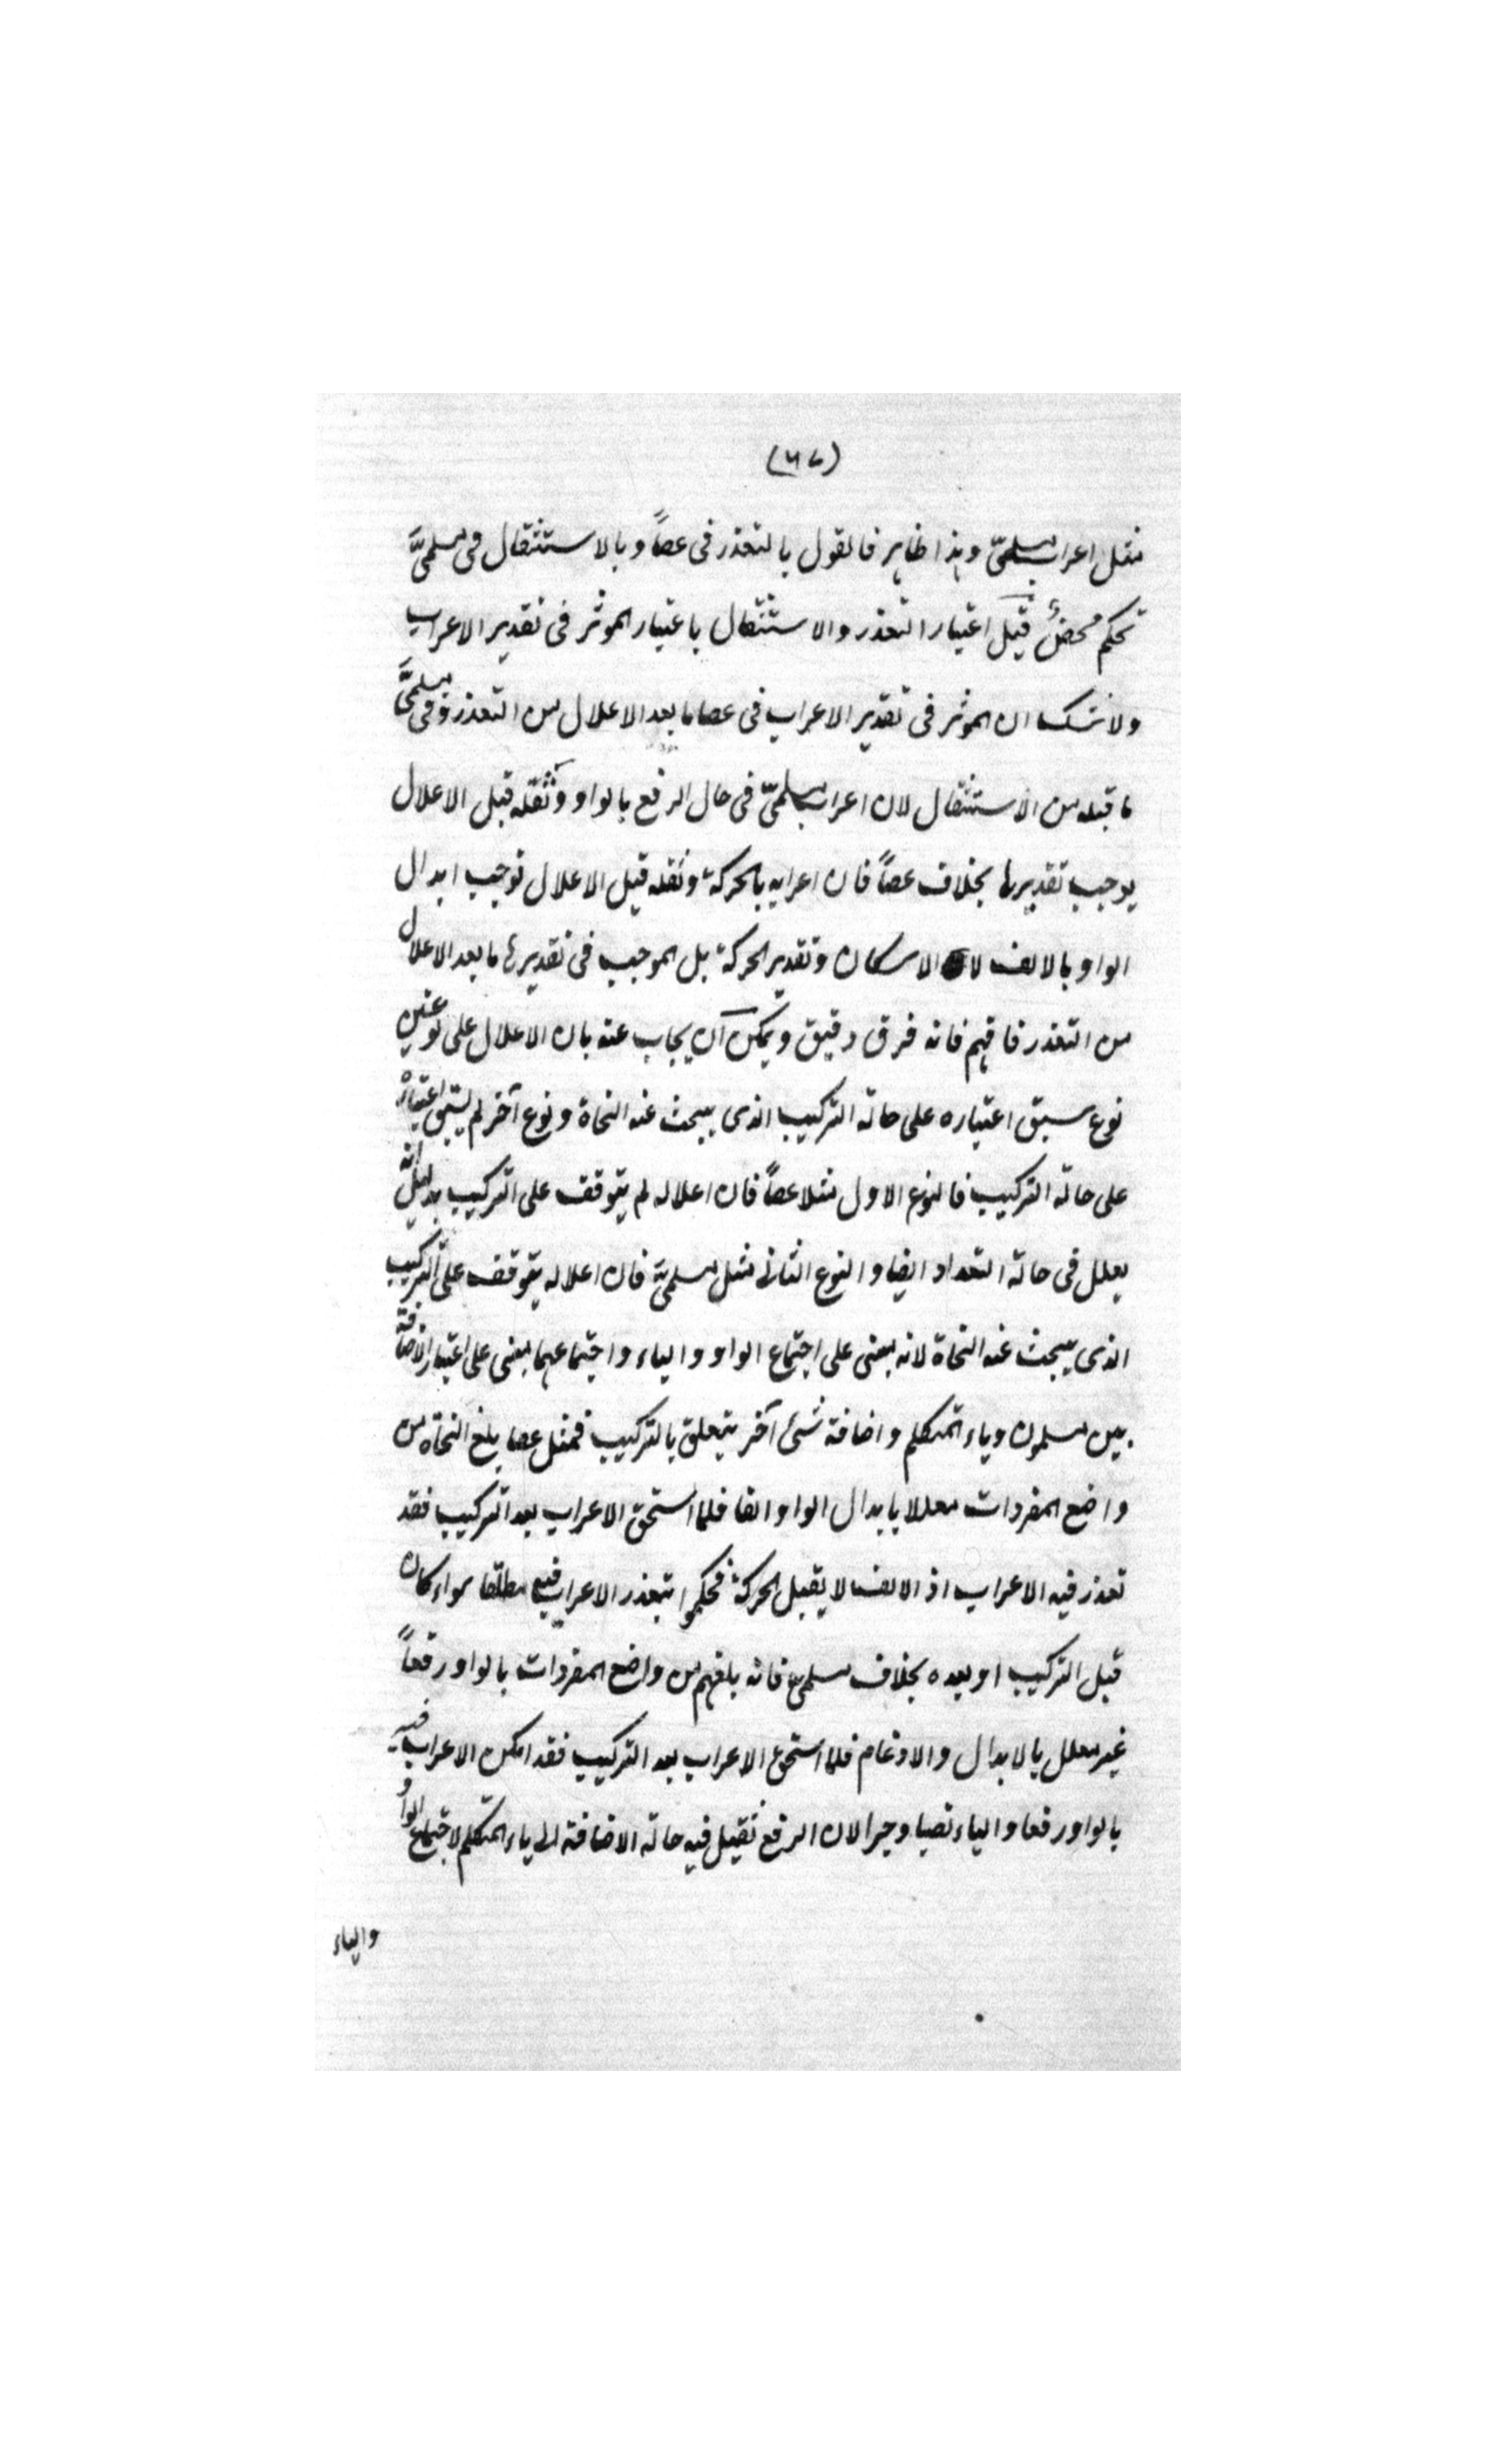 (٦٧)
مثل اعراب مسلمىّ وهذا ظاهر فالقول بالتعذر فى عصاً وبالاستثقال فى مسلمىَّ
تحكم محضٌ قيل اعتبار التعذر والاستثقال باعتبار الموثر فى تقدير الاعراب
ولا شك ان الموثر فى تقدير الاعراب فى عصا ما بعد الاعلال من التعذر وفى مسلمىَّ
ما قبله من الاستثقال لان اعراب مسلمىّ فى حال الرفع بالواو وثقله قبل الاعلال
يوجب تقديرها بخلاف عصاً فان اعرابه بالحركة وثقله قبل الاعلال توجب ابدال
الواو بالالف لا الاسكان وتقدير الحركة بل الموجب فى تقديرها ما بعد الاعلال
من التعذر فافهم فانه فرق دقيق ويمكن آن يجاب عنه بان الاعلال على نوعين
نوع سبق اعتباره على حالة التركيب الذى يبحث عنه النحاة ونوع آخر لم يسبق اعتباره
على حالة التركيب فالنوع الاول مثلا عصاً فان اعلاله لم يتوقف على التركيب بدليل انه
يعلل فى حالة التعداد ايضا والنوع الثانى مثل مسلمىَّ فان اعلاله يتوقف على التركيب
الذى يبحث عنه النحاة لانه يبنى على اجتماع الواو والياء واجتماعهما يبنى على اعتبار الاضافة
بين مسلمون وياء المتكلم واضافة شئ آخر يتعلق بالتركيب فمثل عصا بلغ النحاة من
واضع المفردات معللا بابدال الواو الفا فلما استحق الاعراب بعد التركيب فقد
تعذر فيه الاعراب اذ الالف لا يقبل الحركة فحكموا بتعذر الاعراب فيه مطلقا سواء كان
قبل التركيب او بعده بخلاف مسلمىّ فانه بلغهم من واضع المفردات بالواو رفعاً
غير معلل بالابدال والادغام فلما استحق الاعراب بعد التركيب فقد امكن الاعراب فيه
بالواو رفعا والياء نصبا وجرا لان الرفع ثقيل فيه حالة الاضافة الى ياء المتكلم لاجتماع الواو
والياء